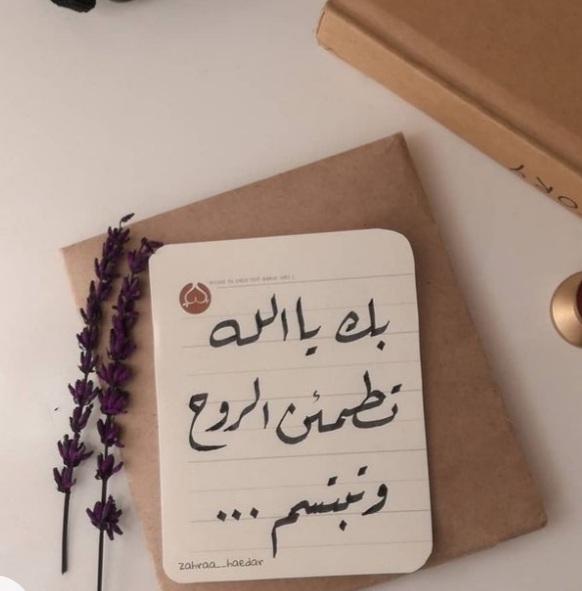 بك يا الله
تطمئن الروح
وتبتسم ...
zahraa_haedar